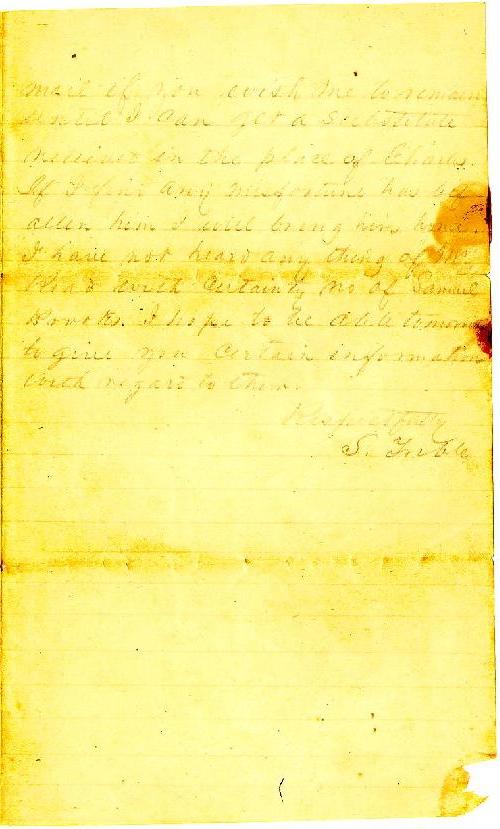 mail if you wish me to remain
until I can get a Substitute
received in the place of Charles.
If I find any misfortune has bef
allen him I will bring him home.
I have not heard any thing of Mr
with Certainty no of Samuel
Brooks. I hope to be able tomorrow
to give you certain information
with regard to them.
Respectfully
S.